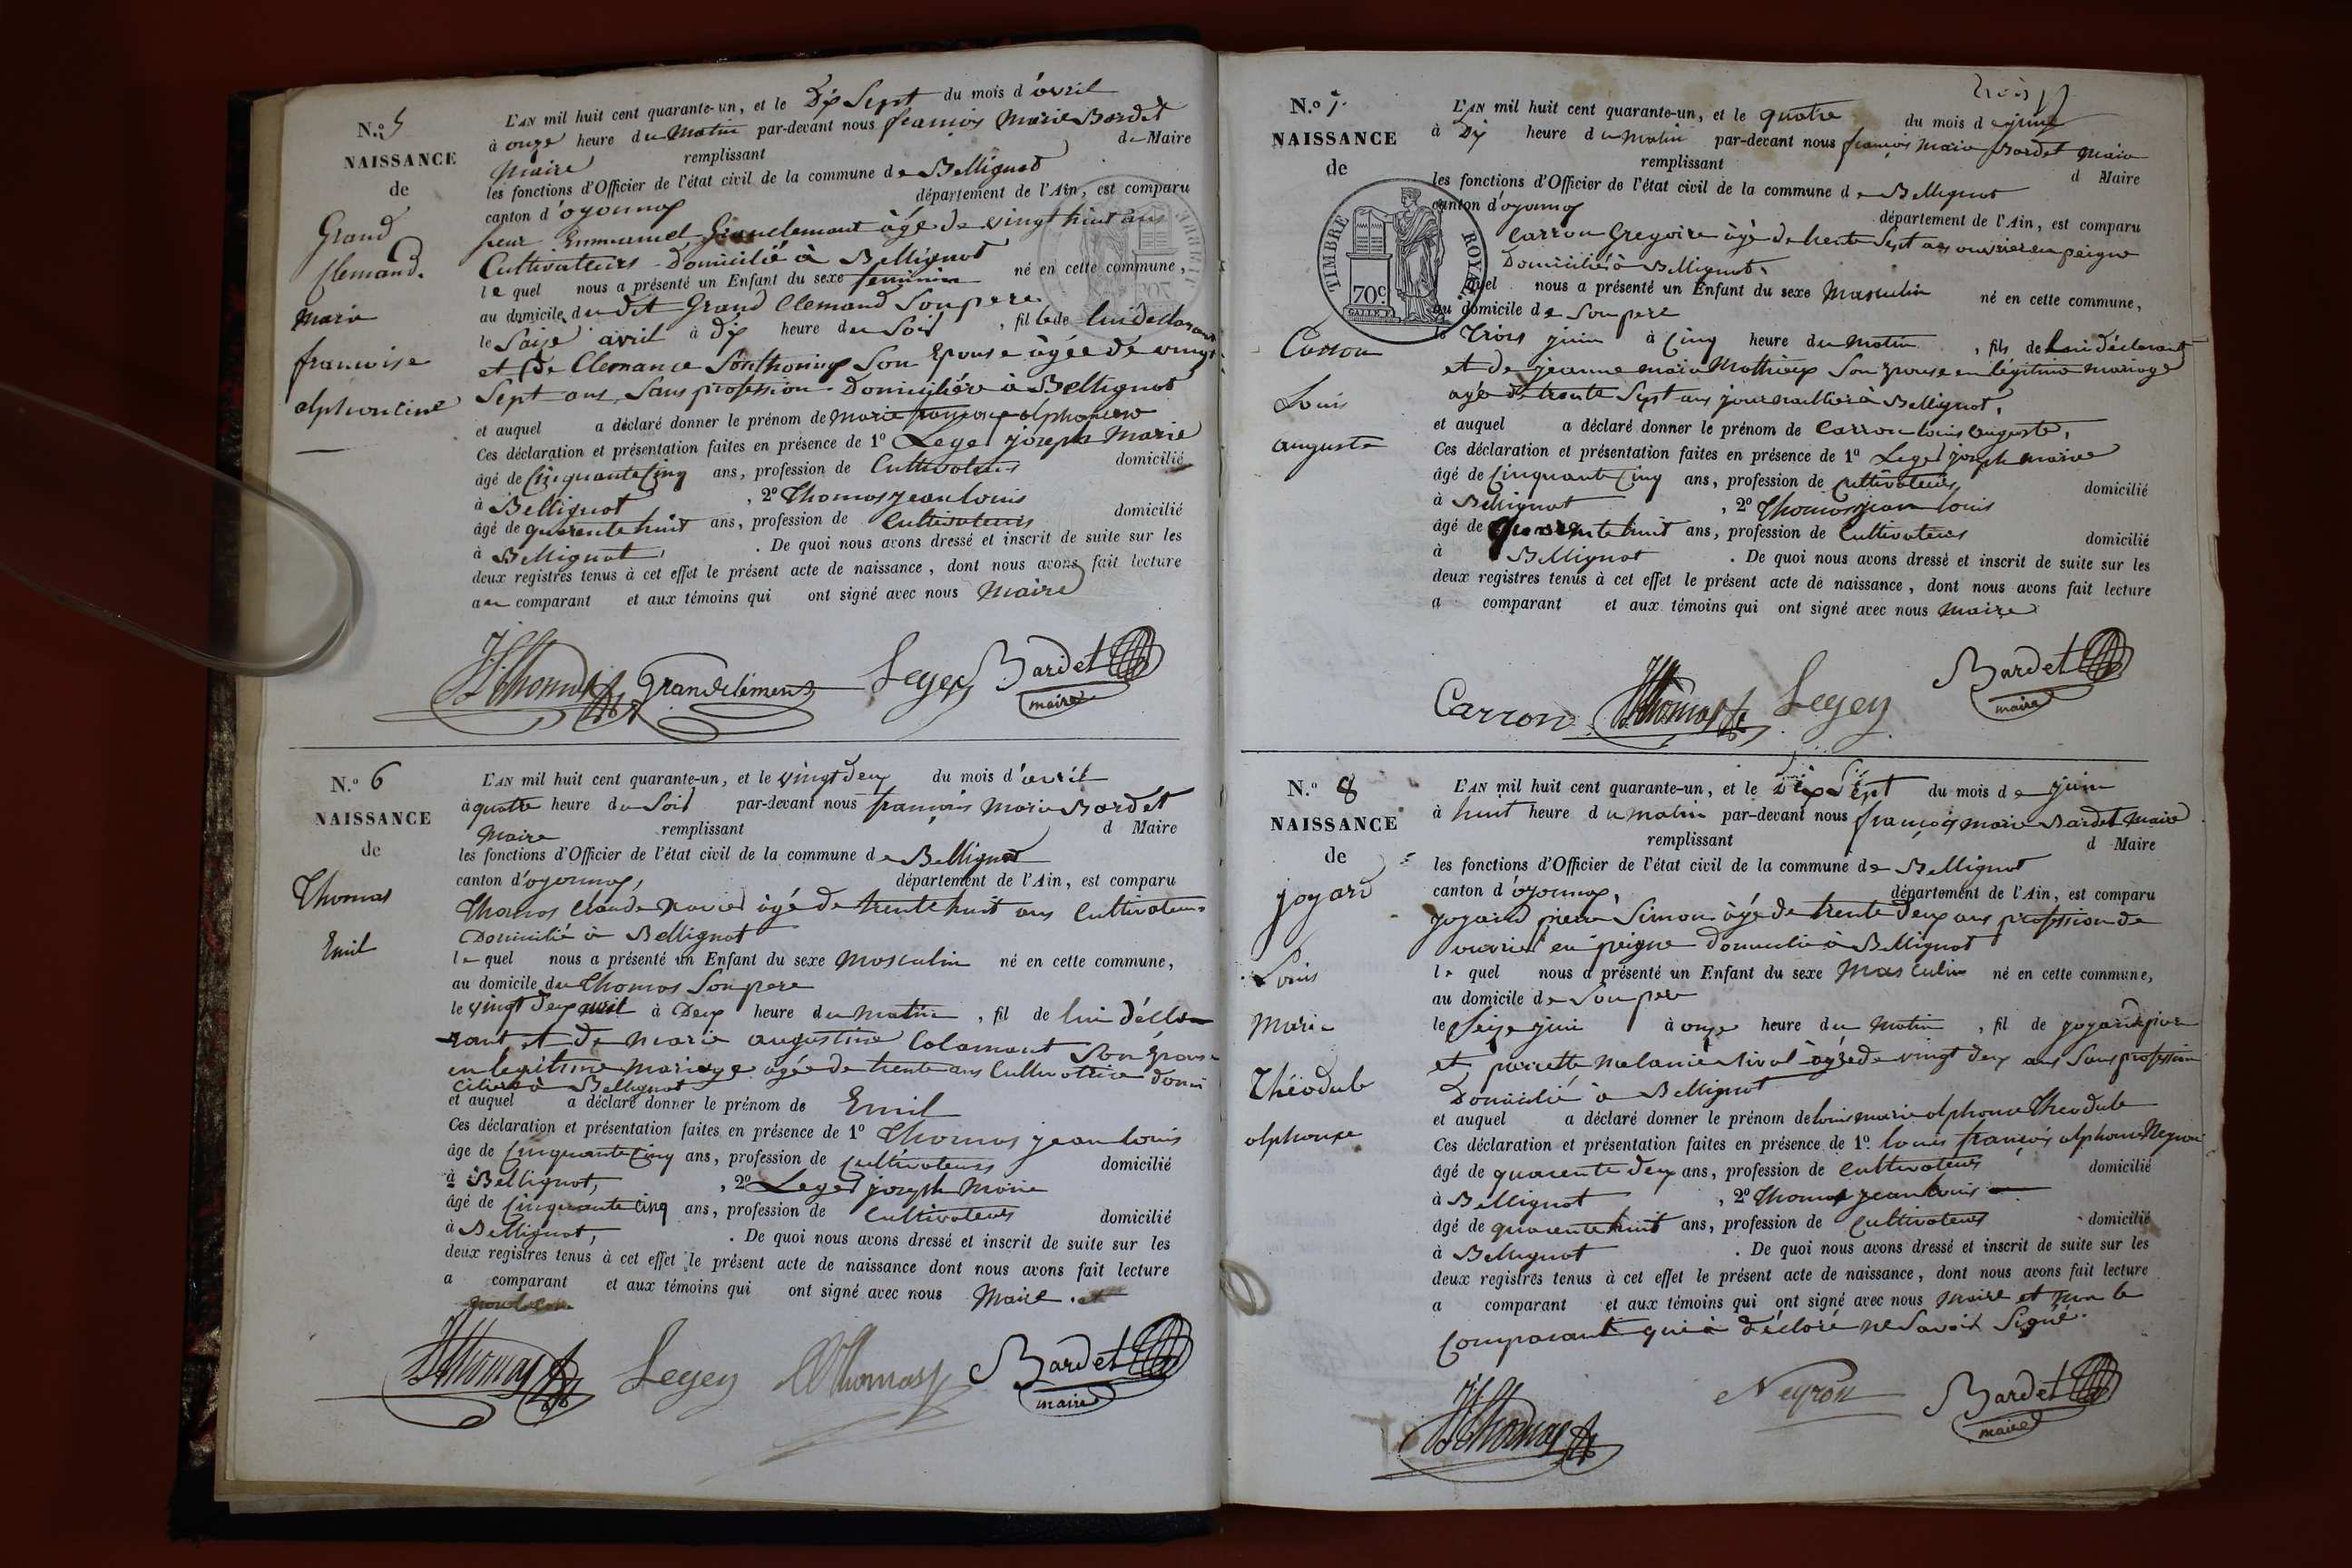 N.º 5
NAISSANCE
de
Grand
Clemand.
marie
francoise
alphoncine
L'AN mil huit cent quarante-un, et le Dix Sept du mois d'avril
à onze heure du matin par-devant nous françois Marie Bardet
Maire remplissant de Maire
les fonctions d'Officier de l'état civil de la commune de Bellignat
canton d'oyonnax département de l'Ain, est comparu
sieur Emmanuel Granclemant âgé de vingt huit ans
Cultivateurs Domicilié à Bellignat
lequel nous a présenté un Enfant du sexe feminin né en cette commune,
au domicile du dit Grand Clemand Son pere
le Saize avril à dix heure du Soir, fille de lui declarant
et de Clemance Sonthonnax Son Epouse âgée de vingt
Sept ans, Sans profession Domiciliée à Bellignat
et auquel a déclaré donner le prénom de marie françoise alphoncine
Ces déclaration et présentation faites en présence de 1º Leger joseph Marie
âgé de Cinquante Cinq ans, profession de Cultivateurs domicilié
à Bellignat, 2º Thomas jean louis
âgé de quarente huit ans, profession de Cultivateurs domicilié
à Bellignat, . De quoi nous avons dressé et inscrit de suite sur les
deux registres tenus à cet effet le présent acte de naissance, dont nous avons fait lecture
au comparant et aux témoins qui ont signé avec nous Maire
JLThomas Grandclément Leger Bardet
maire
N.º 6
NAISSANCE
de
Thomas
Emil
L'AN mil huit cent quarante-un, et le vingt deux du mois d'avril
à quatre heure du Soir par-devant nous françois Marie Bardet
Maire remplissant d Maire
les fonctions d'Officier de l'état civil de la commune de Bellignat
canton d'oyonnax, département de l'Ain, est comparu
Thomas Claude Xavier âgé de trente huit ans Cultivateurs
Domicilié à Bellignat
lequel nous a présenté un Enfant du sexe Masculin né en cette commune,
au domicile du Thomas Son pere
le vingt deux avril à Deux heure du matin, fil de lui décla
rant et de Marie augustine Calamant Son Epouse
en legitime mariage agée de trente ans Cultivatrice domi
ciliée à Bellignat
et auquel a déclaré donner le prénom de Emil
Ces déclaration et présentation faites en présence de 1º Thomas jean louis
âge de Cinquante Cinq ans, profession de Cultivateurs domicilié
à Bellignat, , 2º Leger joseph Marie
âgé de Cinquante Cinq ans, profession de Cultivateurs domicilié
à Bellignat, . De quoi nous avons dressé et inscrit de suite sur les
deux registres tenus à cet effet le présent acte de naissance dont nous avons fait lecture
a comparant et aux témoins qui ont signé avec nous Maire .
JLThomas Leger Thomas Bardet
maire
trois
N.º 7.
NAISSANCE
de
TIMBRE ROYAL.
70c
Carron
Louis
auguste
L'AN mil huit cent quarante-un, et le quatre du mois de juin
à Dix heure du matin par-devant nous françois Marie Bardet Maire
remplissant d Maire
les fonctions d'Officier de l'état civil de la commune de Bellignat
canton d'oyonnax département de l'Ain, est comparu
Carron Gregoire âgé de trente Sept ans ouvrier en peigne
Domicilié à Bellignat.
quel nous a présenté un Enfant du sexe Masculin né en cette commune,
au domicile de Son pere
le Trois juin à Cinq heure du Matin, fils de lui déclarant
et de jeanne marie Mathieux Son Epouse en légitime mariage
agée de trente Sept ans journaillière à Bellignat,
et auquel a déclaré donner le prénom de Carron louis auguste,
Ces déclaration et présentation faites en présence de 1º Leger joseph marie
âgé de Cinquante Cinq ans, profession de Cultivateurs domicilié
à Bellignat, 2º Thomas jean louis
âgé de quarente huit ans, profession de Cultivateurs domicilié
à Bellignat . De quoi nous avons dressé et inscrit de suite sur les
deux registres tenus à cet effet le présent acte de naissance, dont nous avons fait lecture
a comparant et aux témoins qui ont signé avec nous Maire
Carron JLThomas Leger Bardet
maire
N.º 8
NAISSANCE
de
joyard
Louis
Marie
Théodule
alphonse
L'AN mil huit cent quarante-un, et le Dix Sept du mois de juin
à huit heure du matin par-devant nous françois marie Bardet Maire
remplissant d Maire
les fonctions d'Officier de l'état civil de la commune de Bellignat
canton d'oyonnax, département de l'Ain, est comparu
joyard pierre Simon âgé de trente Deux ans profession de
ouvrier en peigne domicilié à Bellignat
lequel nous a présenté un Enfant du sexe Masculin né en cette commune,
au domicile de Son pere
le Seize juin à onze heure du Matin, fil de joyard pierre
et pierrette Melanie Nivol âgée de vingt deux ans Sans profession
Domicilié à Bellignat
et auquel a déclaré donner le prénom de louis marie alphonse Theodule
Ces déclaration et présentation faites en présence de 1º. louis françois alphonse Neyron
âgé de quarente deux ans, profession de Cultivateurs domicilié
à Bellignat, 2º Thomas jean louis
âgé de quarente huit ans, profession de Cultivateurs domicilié
à Bellignat . De quoi nous avons dressé et inscrit de suite sur les
deux registres tenus à cet effet le présent acte de naissance, dont nous avons fait lecture
a comparant et aux témoins qui ont signé avec nous Maire et non le
Comparant qui à déclaré ne Savoir Signé.
JLThomas Neyron Bardet
maire